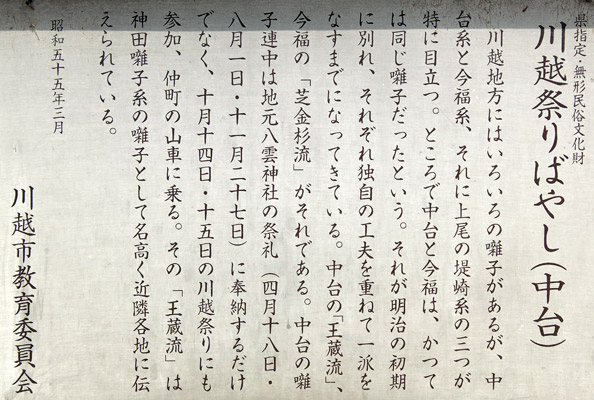 県指定・無形民俗文化財
川越祭りばやし(中台)
川越地方にはいろいろの囃子があるが、中
台系と今福系、それに上尾の堤崎系の三つが
特に目立つ。ところで中台と今福は、かつて
は同じ囃子だったという。それが明治の初期
に別れ、それぞれ独自の工夫を重ねて一派を
なすまでになってきている。中台の「王蔵流」、
今福の「芝金杉流」がそれである。中台の囃
子連中は地元八雲神社の祭礼(四月十八日・
八月一日・十一月二十七日)に奉納するだけ
でなく、十月十四日・十五日の川越祭りにも
参加、仲町の山車に乗る。その「王蔵流」は
神田囃子系の囃子として名高く近隣各地に伝
えられている。
昭和五十五年三月
川越市教育委員会